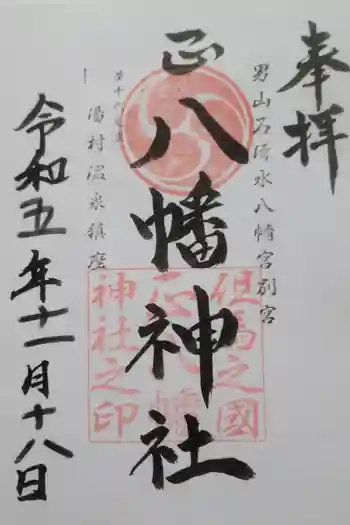 奉拝
男山石清水八幡宮別宮
正八幡神社
但馬之國
正八幡
神社之印
湯村温泉鎮座
令和五年十一月十八日